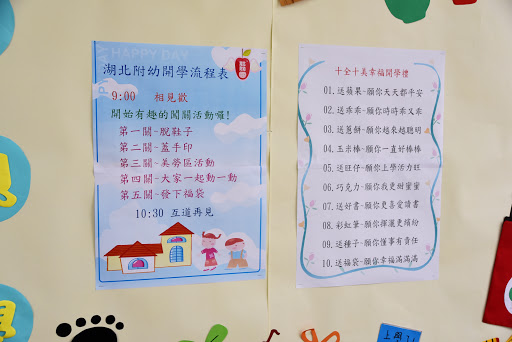 HAPPY DAY
湖北附幼開學流程表
9:00 相見歡
開始有趣的闖關活動囉!
第一關-脫鞋子
第二關-蓋手印
第三關-美勞區活動
第四關-大家一起動一動
第五關-發下福袋
10:30 互道再見
十全十美幸福開學禮
01.送蘋果-願你天天都平安
02.送乖乖-願你時時乖又乖
03.送蔥餅-願你越來越聰明
04.玉米棒-願你一直好棒棒
05.送旺仔-願你上學活力旺
06.巧克力-願你我更甜蜜蜜
07.送好書-願你更喜愛讀書
08.彩虹筆-願你揮灑更繽紛
09.送種子-願你懂事有責任
10.送福袋-願你幸福滿滿滿